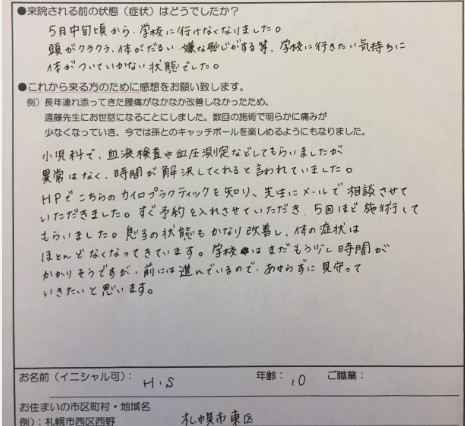 ●来院される前の状態（症状）はどうでしたか？
5月中旬頃から、学校に行けなくなりました。
頭がクラクラ、体がだるい、嫌な感じがする等、学校に行きたい気持ちに
体がついていかない状態でした。
●これから来る方のために感想をお願い致します。
例）長年連れ添ってきた腰痛がなかなか改善しなかったため、
遠藤先生にお世話になることにしました。数回の施術で明らかに痛みが
少なくなっていき、今では孫とのキャッチボールを楽しめるようにもなりました。
小児科で、血液検査や血圧測定などしてもらいましたが
異常はなく、時間が解決してくれると言われていました。
HPでこちらのカイロプラクティックを知り、先生にメールで相談させて
いただきました。すぐ予約を入れさせていただき、5回ほど施術して
もらいました。息子の状態もかなり改善し、体の症状は
ほとんどなくなってきています。学校はまだもう少し時間が
かかりそうですが、前には進んでいるので、あせらずに見守って
いきたいと思います。
お名前（イニシャル可）： H.S 年齢： 10 ご職業：
お住まいの市区町村・地域名
例）：札幌市西区西野 札幌市東区